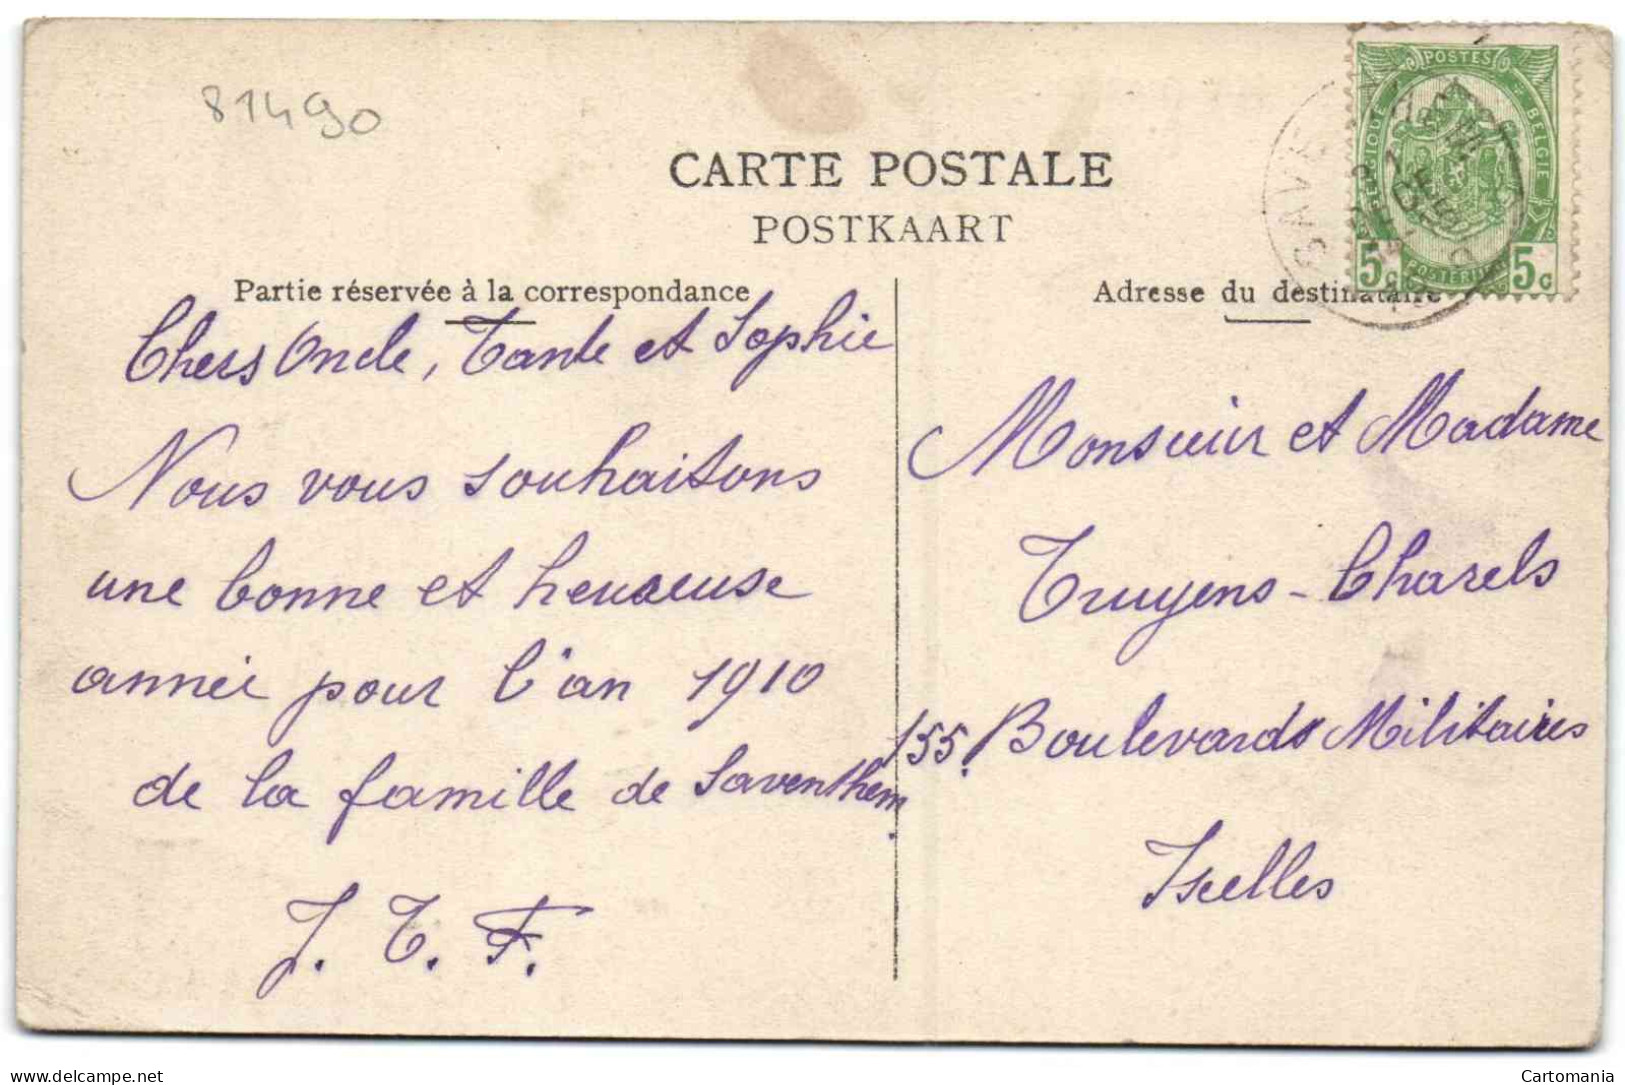 81490
CARTE POSTALE
POSTKAART
Partie réservée à la correspondance
Adresse du destinataire
POSTES
BELGIQUE
BELGIE
POSTERIJEN
5c
5c
Chers Oncle, Tante et Sophie
Nous vous souhaitons
une bonne et heureuse
année pour l'an 1910
de la famille de Saventhem.
J. T. F.
Monsieur et Madame
Truyens-Charels
155. Boulevards Militaires
Ixelles
delcampe.net
Cartomania